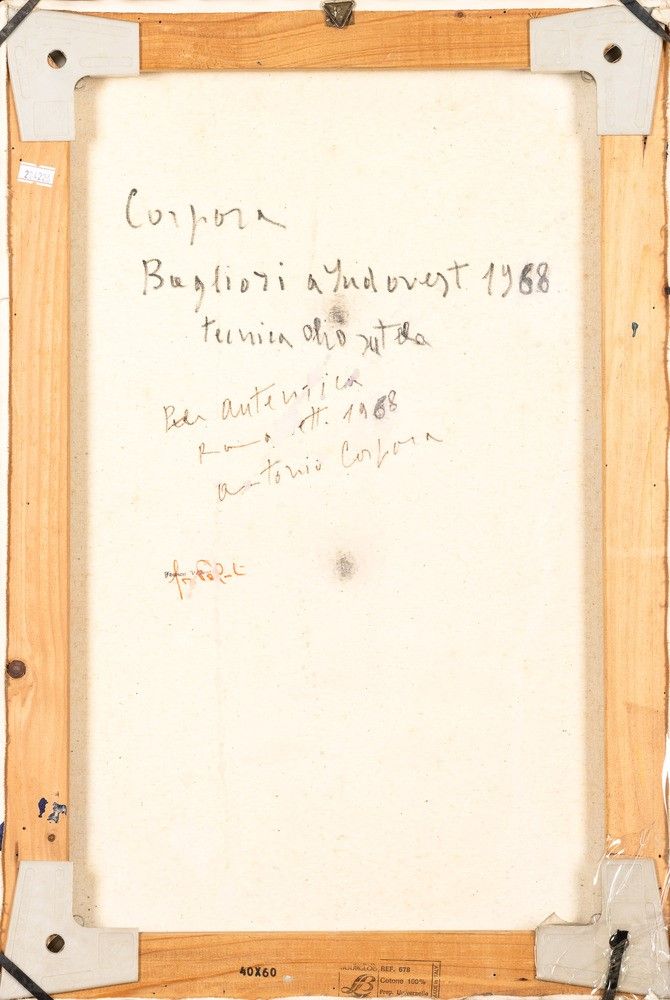 Corpora
Bagliori a Sudovest 1968
tecnica olio su tela
Per autentica
Roma 1968
Antonio Corpora
40X60
REF. 678
Cotone 100%
Prep. Universale
MADE IN ITALY